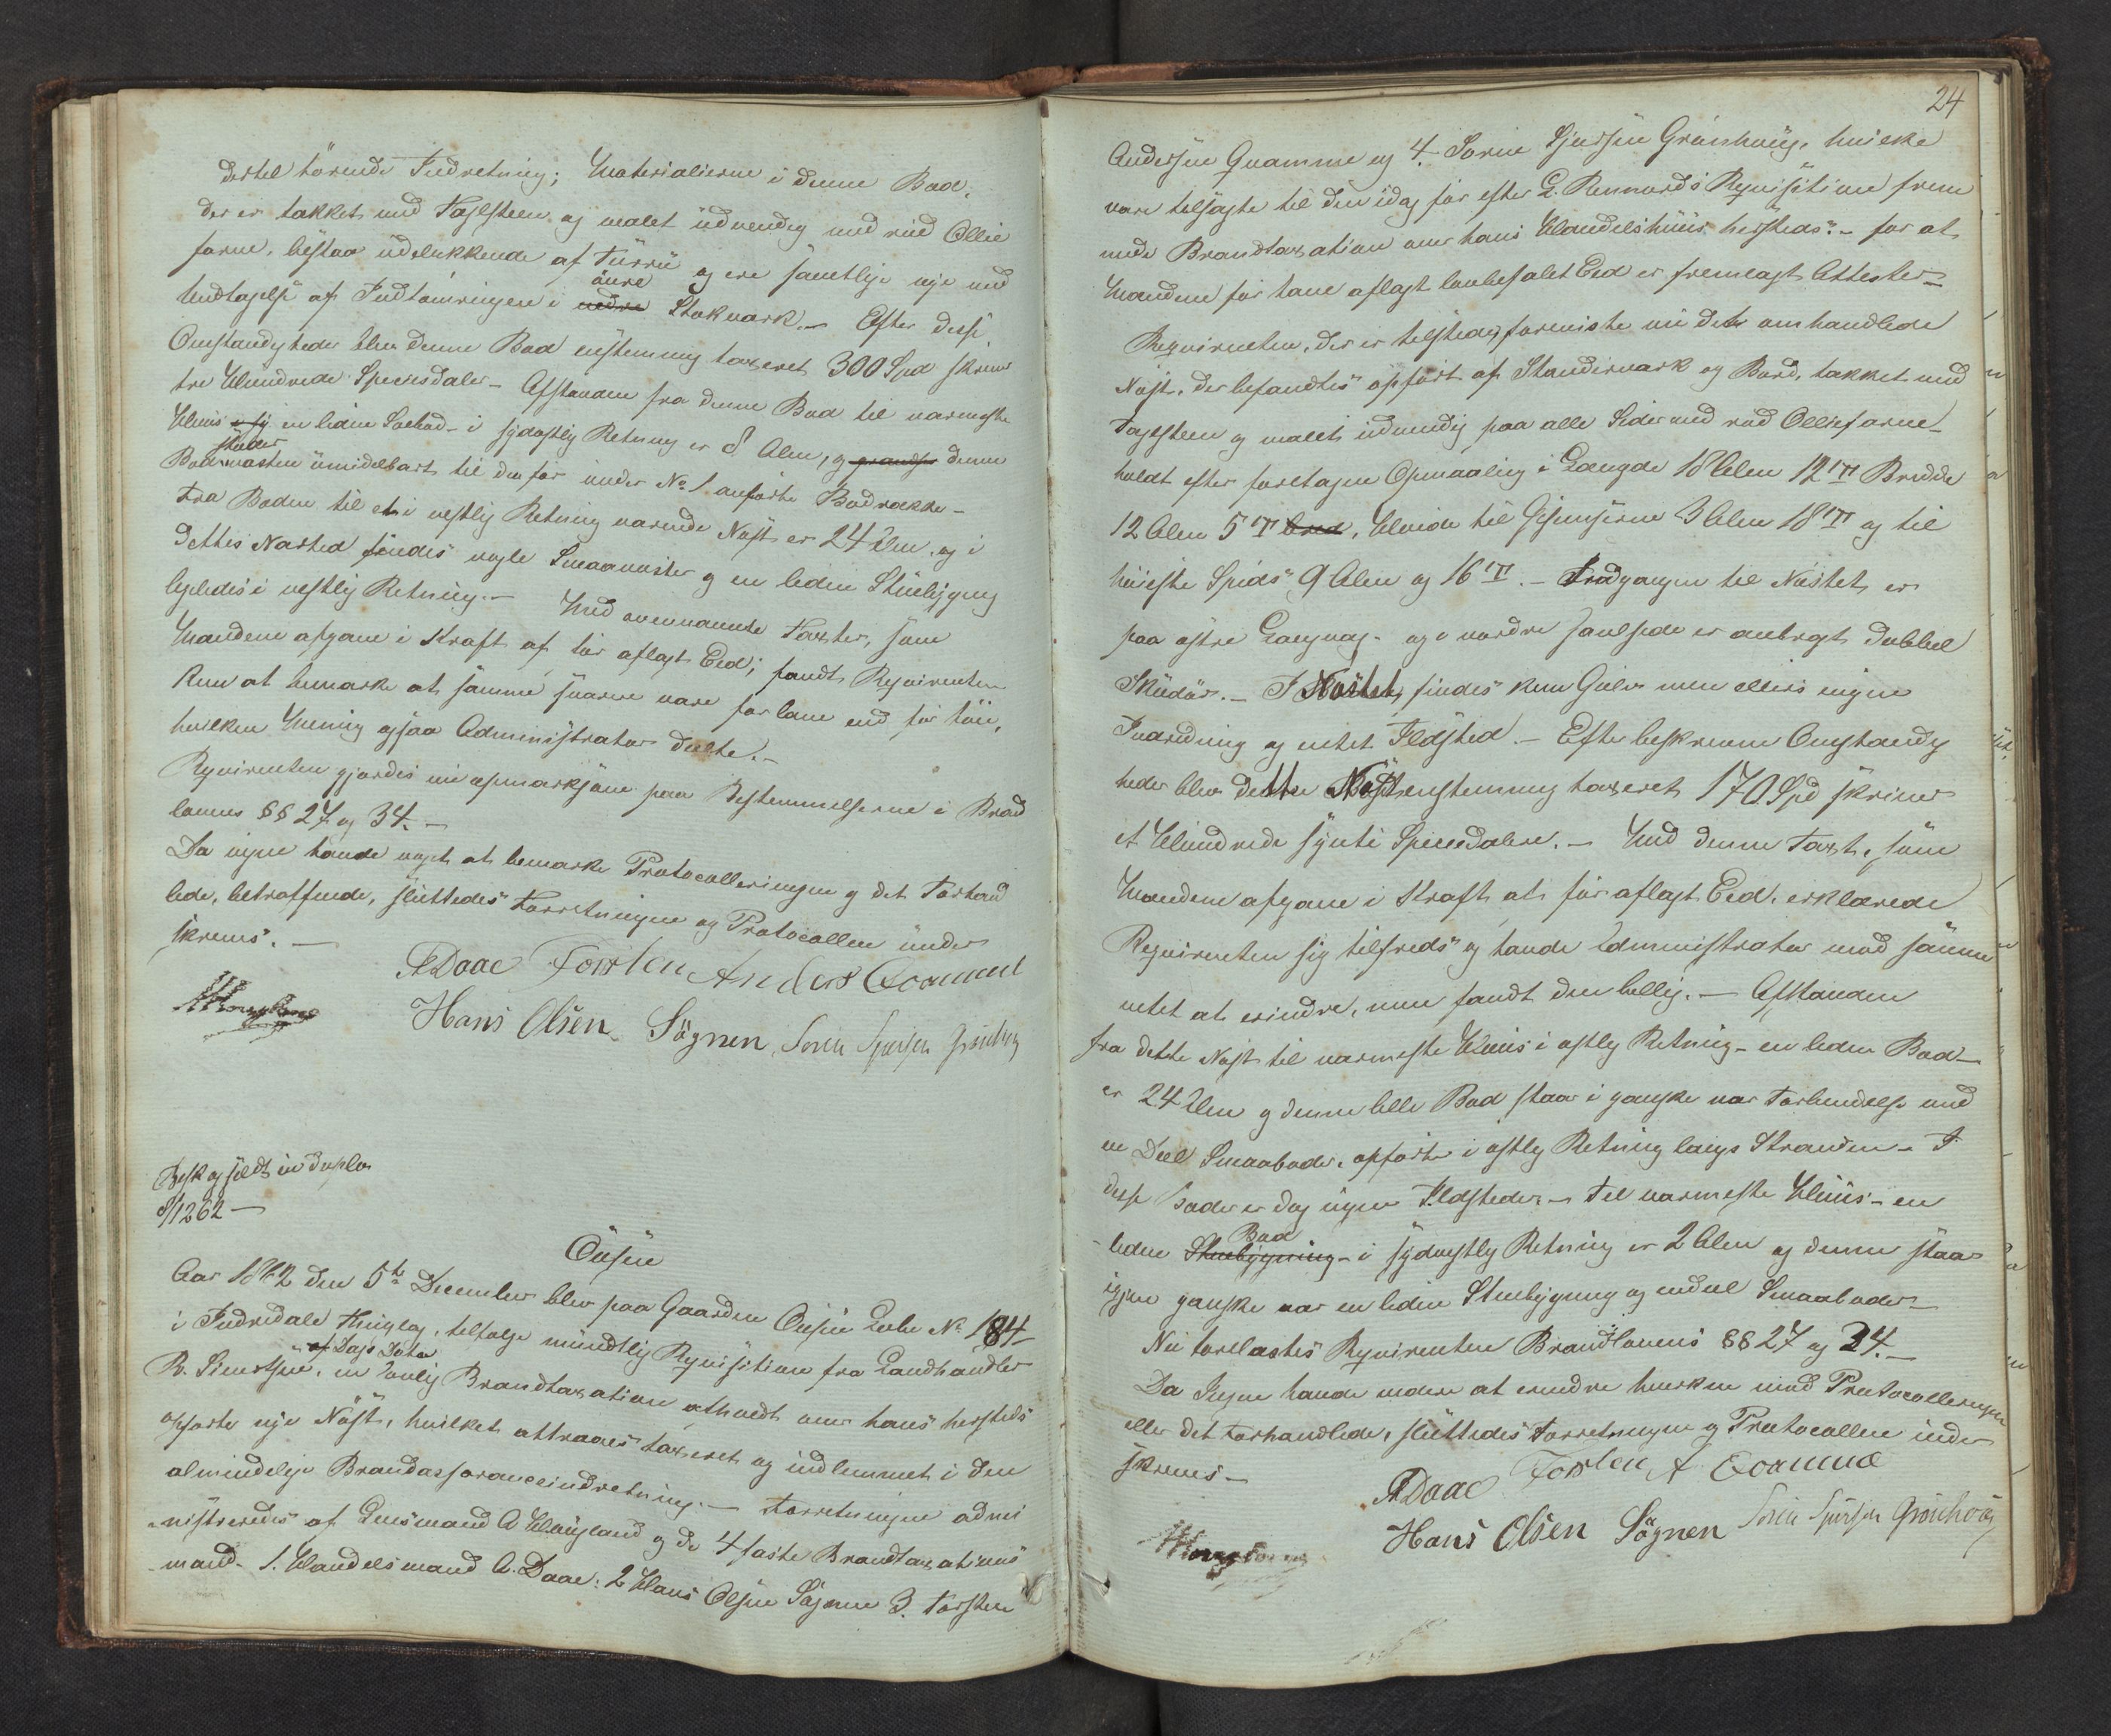 dertil hörende Indretning; Materialierne i denne Bod,
der er takket med Taglsteen og malet udvendig med röd Ollie
farve, bestaar udelukkende af Furru og ere samtlige nye med
övre
Undtagelse af Indtömringen i nedre Stokværk. – Efter disse
Omstændigheder blev denne Bod eenstemmig taxeret 300 Spd skriver
tre Hundrede Speciesdaler – Afstanden fra denne Bod til nærmeste
Huus en liden Søebod – i sydostlig Retning er 8 Alen, og grændser denne
stöder
Bod næsten umidelbart til den för under No 1 anförte Bodrække –
Fra Boden til et i vestlig Retning værende Nöst er 24 Alen, og i
dettes Nærhed findes nogle Smaanöster og en liden Stuebygning
ligeledes i vestlig Retning. – Med ovennævnte Taxter, som
Mændene afgave i Kraft af för aflagt Eed; fandt Requirenten
kun at bemærke at samme snarere vare for lave end for höie,
hvilken Mening ogsaa Administrator deelte. –
Requirenten gjordes nu opmærksom paa Bestemmelserne i Brand
lovens §§ 27 og 34. –
Da ingen havde noget at bemærke Protocolleringen og det Forhand
lede, betræffende, sluttedes Forretningen og Protocollen under
skrevs. –
ADaae Torsten Anders Qvamme
Hans Olsen Sögnen, Soren Sjursen Grönhoug
Besk og sildt in duplo
8/1262 –
Öusen
Aar 1862 den 5te December blev paa Gaarden Öusen Löbe No 184
i Indredale Thinglag, ifölge mundtlig Requisition fra Landhandler
af Dags Dato
R. Simersen, en lovlig Brandtaxation afholdt over hans hersteds
opförte nye Nöst, hvilket attraaes taxeret og indlemmet i den
almindelige Brandassuranceindretning. – Forretningen admi
nistreredes af Lensmand A Haugland og de 4 faste Brandtaxations
mænd – 1. Handelsmand A. Daae: 2 Hans Olsen Sögnen 3. Torsten
24
Andersen Qvamme og 4. Soren Sjursen Grönhoug, hvilke
vare tilsagte til den idag för efter L. Rennords Requisition frem
mede Brandtaxation over hans Handelshuus hersteds. – for at
Mændene för have aflagt lovbefalet Eed er fremlagt Attester –
Requirenten, der er tilstede, foreviste nu det omhandlede
Nöst, der befandtes opfört af Standerværk og Bord, takket med
Taglsteen og malet udvendig paa alle Sider med röd Olliefarve –
holdt efter foretagen Opmaaling i Længde 18 Alen 12 T Bredde
12 Alen 5 T bred, Höide til Gesimserne 3 Alen 18 T og til
höieste Spids 9 Alen og 16 T. – Indgangen til Nöstet er
paa östre Langvæg – og i nordre Gavlside er anbragt dobbel
Skuedör. – I Nöstet findes kun Gulv men ellers ingen
Indredning og intet Ildsted. – Efter beskrevne Omstændig
heder blev dette Nöst eenstemmig taxeret 170 Spd skriver
et Hundrede sytti Speciedalere. – Med denne Taxt, som
Mændene afgave i Kraft at för aflagt Eed, erklærede
Requirenten sig tilfreds og havde Administrator mod samme
intet at erindre, men fandt den billig. – Afstanden
fra dette Nöst til nærmeste Huus i östlig Retning – en liden Bod –
er 24 Alen og denne lille Bod staar i ganske nær Forbindelse med
en Deel Smaaboder, opförte i östlig Retning langs Stranden – I
disse Boder er dog ingen Ildsteder – Til nærmeste Huus – en
Bod
liden Stuebygning – i sydvestlig Retning er 2 Alen og denne staar
igjen ganske nær en liden Stuebygning og endeel Smaaboder –
Nu forelæstes Requirenten Brandlovens §§ 27 og 34. –
Da Ingen havde videre at erindre hverken mod Protocolleringen
eller det Forhandlede, sluttedes Forretningen og Protocollen under
skrevs –
ADaae Torsten A Qvamme
Hans Olsen Sögnen Sören Sjursen Grönhoug